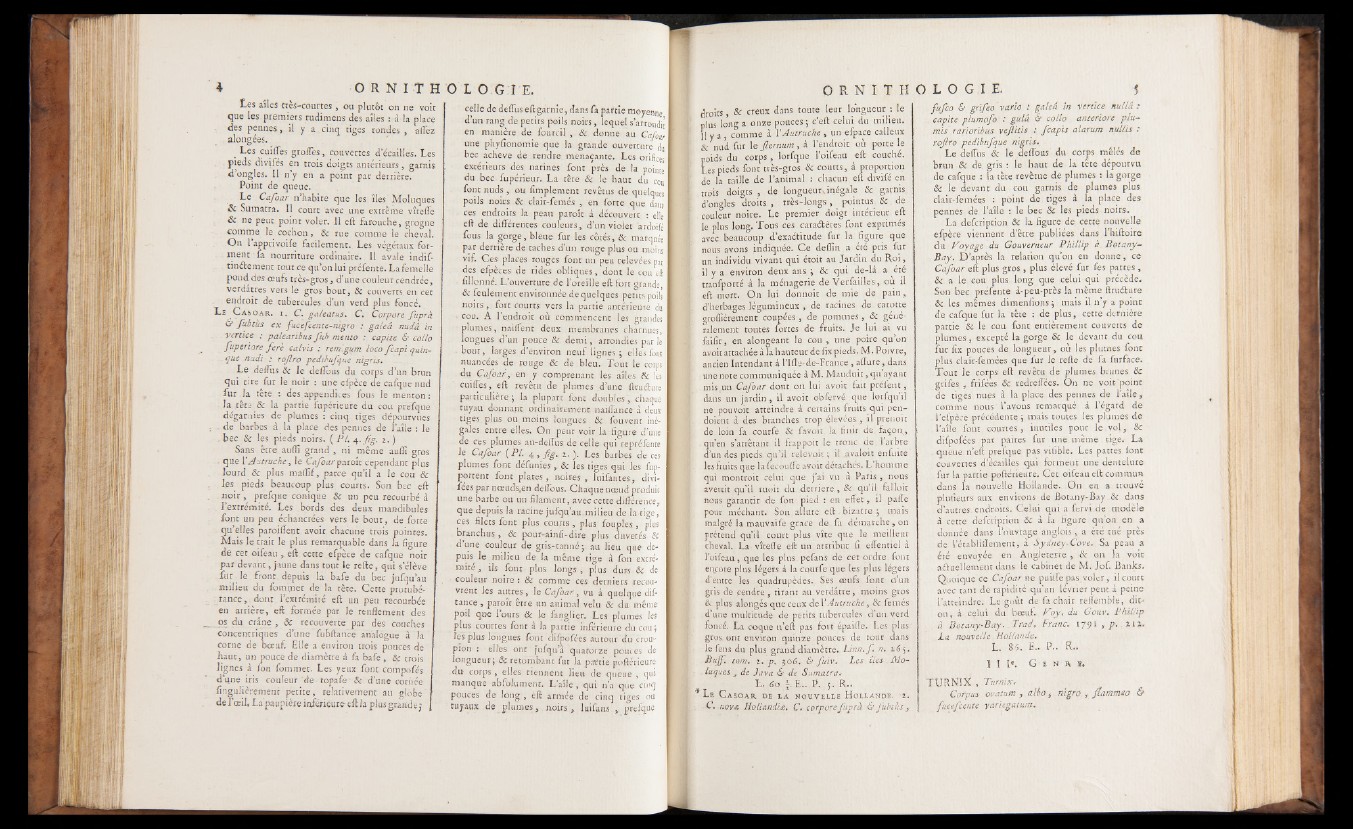 4 ORNITHOLOGIE.
Les aîles très-courtes, ou plutôt on ne voit
que les premiers rudimens des aîles : à la place
des pennes, il y a cinq tiges rondes, assez
alongées.
Les cuisses grosses, couvertes d'écailles. Les
pieds divisés en trois doigts antérieurs, garnis
d'ongles. Il n'y en a point par derrière.
Point de queue.
Le Casoar n'habite que les îles Moluques
& Sumatra. Il court avec une extrême vîtesse
& ne peut point voler. Il est farouche, grogne
comme le cochon, & rue comme le cheval.
On l'apprivoise facilement. Les végétaux for-
ment sa nourriture ordinaire. Il avale indis-
tinctement tout ce qu'on lui présente. La femelle
pond des œufs très-gros, d'une couleur cendrée,
verdâtres vers le gros bout, & couverts en cet
endroit de tubercules d'un verd plus foncé.
LE CASOAR. 1. C. galeatus. C. Corpore suprà
& subtùs ex fuscescente-nigro : galeâ nudâ in
vertice : palearibus sub mento : capite & collo
superiore ferè calvis : remigum loco scapi quin-
que nudi : rostro pedibusque nigris.
Le dessus & le dessous du corps d'un brun
qui tire sur le noir : une espèce de casque nud
sur la tête : des appendices sous le menton :
la tête & la partie supérieure du cou presque
dégarnies de plumes : cinq tiges dépourvues
de barbes à la place des pennes de l'aîle : le
bec & les pieds noirs. ( Pl. 4. fig. 2. )
Sans être aussi grand, ni même aussi gros
que l'Autruche, le Casoar paroît cependant plus
lourd & plus massif, parce qu'il a le cou &
les pieds beaucoup plus courts. Son bec est
noir, presque conique & un peu recourbé à
l'extrémité. Les bords des deux mandibules
sont un peu échancrées vers le bout, de sorte
qu'elles paroissent avoir chacune trois pointes.
Mais le trait le plus remarquable dans la figure
de cet oiseau, est cette espèce de casque noir
par devant, jaune dans tout le reste, qui s'élève
sur le front depuis la base du bec jusqu'au
milieu du sommet de la tête. Cette protubé-
rance, dont l'extrémité est un peu recourbée
en arrière, est formée par le renflement des
os du crâne, & recouverte par des couches
concentriques d'une substance analogue à la
corne de bœuf. Elle a environ trois pouces de
haut, un pouce de diamètre à sa base, & trois
lignes à son sommet. Les yeux sont composés
d'une iris couleur de topase & d'une cornée
singulièrement petite, relativement au globe
de l'œil. La paupière inférieure est la plus grande;
celle de dessus est garnie, dans sa partie moyenne,
d'un rang de petits poils noirs, lequel s'arrondit
en manière de sourcil, & donne au Casoar
une physionomie que la grande ouverture du
bec achève de rendre menaçante. Les orifices
extérieurs des narines sont près de la pointe
du bec supérieur. La tête & le haut du cou
sont nuds, ou simplement revêtus de quelques
poils noirs & clair-semés, en sorte que dans
ces endroits la peau paroît à découvert : elle
est de différentes couleurs, d'un violet ardoisé
sous la gorge, bleue sur les côtés, & marquée
par derrière de taches d'un rouge plus ou moins
vif. Ces places rouges sont un peu relevées par
des espèces de rides obliques, dont le cou est
sillonné. L'ouverture de l'oreille est fort grande,
& seulement environnée de quelques petits poils
noirs, fort courts vers la partie antérieure du
cou. A l'endroit où commencent les grandes
plumes, naissent deux membranes charnues,
longues d'un pouce & demi, arrondies par le
bout, larges d'environ neuf lignes; elles sont
nuancées de rouge & de bleu. Tout le corps
du Casoar, en y comprenant les aîles & les
cuisses, est revêtu de plumes d'une structure
particulière; la plupart sont doubles, chaque
tuyau donnant ordinairement naissance à deux
tiges plus ou moins longues & souvent iné-
gales entre elles. On peut voir la figure d'une
de ces plumes au-dessus de celle qui représente
le Casoar ( Pl. 4, fig. 2. ). Les barbes de ces
plumes sont désunies, & les tiges qui les sup-
portent sont plates, noires, luisantes, divi-
sées par nœuds en dessous. Chaque nœud produit
une barbe ou un filament, avec cette différence,
que depuis la racine jusqu'au milieu de la tige,
ces filets sont plus courts, plus souples, plus
branchus, & pour-ainsi-dire plus duvetés &
d'une couleur de gris-tanné; au lieu que de-
puis le milieu de la même tige à son extré-
mité, ils sont plus longs, plus durs & de
couleur noire : & comme ces derniers recou-
vrent les autres, le Casoar, vu à quelque dis-
tance, paroît être un animal velu & du même
poil que l'ours & le sanglier. Les plumes les
plus courtes sont à la partie inférieure du cou;
les plus longues sont disposées autour du crou-
pion : elles ont jusqu'à quatorze pouces de
longueur; & retombant sur la partie postérieure
du corps, elles tiennent lieu de queue, qui
manque absolument. L'aîle, qui n'a que cinq
pouces de long, est armée de cinq tiges ou
tuyaux de plumes, noirs, luisans, presque
ORNITHOLOGIE. 5
droits, & creux dans toute leur longueur : le
plus long a onze pouces; c'est celui du milieu.
Il y a, comme à l'Autruche, un espace calleux
& nud sur le sternum, à l'endroit où porte le
poids du corps, lorsque l'oiseau est couché.
Les pieds sont très-gros & courts, à proportion
de la taille de l'animal : chacun est divisé en
trois doigts, de longueur inégale & garnis
d'ongles droits, très-longs, pointus & de
couleur noire. Le premier doigt intérieur est
le plus long. Tous ces caractères sont exprimés
avec beaucoup d'exactitude sur la figure que
nous avons indiquée. Ce dessin a été pris sur
un individu vivant qui étoit au Jardin du Roi,
il y a environ deux ans; & qui de-là a été
transporté à la ménagerie de Versailles, où il
est mort. On lui donnoit de mie de pain,
d'herbages légumineux, de racines de carotte
grossièrement coupées, de pommes, & géné-
ralement toutes sortes de fruits. Je lui ai vu
saisir, en alongeant le cou, une poire qu'on
avoit attachée à la hauteur de six pieds. M. Poivre,
ancien Intendant à l'Isle-de-France, assure, dans
une note communiquée à M. Mauduit, qu'ayant
mis un Casoar dont on lui avoit fait présent,
dans un jardin, il avoit observé que lorsqu'il
ne pouvoit atteindre à certains fruits qui pen-
doient à des branches trop élevées, il prenoit
de loin sa course & savoit la finir de façon,
qu'en s'arrêtant il frappoit le tronc de l'arbre
d'un des pieds qu'il relevoit; il avaloit ensuite
les fruits que la secousse avoit détachés. L'homme
qui montroit celui que j'ai vu à Paris, nous
avertit qu'il ruoit du derrière, & qu'il falloit
nous garantir de son pied : en effet, il passe
pour méchant. Son allure est bizarre; mais
malgré la mauvaise grace de sa démarche, on
prétend qu'il court plus vîte que le meilleur
cheval. La vîtesse est un attribut si essentiel à
l'oiseau, que les plus pesans de cet ordre sont
encore plus légers à la course que les plus légers
d'entre les quadrupèdes. Ses œufs sont d'un
gris de cendre, tirant au verdâtre, moins gros
& plus alongés que ceux de l'Autruche, & semés
d'une multitude de petits tubercules d'un verd
foncé. La coque n'est pas fort épaisse. Les plus
gros ont environ quinze pouces de tour dans
le sens du plus grand diamètre. Linn. s. n. 265.
Buff. tom. 2. p. 306. & suiv. Les îles Mo-
luques, de Java & de Sumatra.
L. 60. E.. P. 5. R..
* LE CASOAR DE LA NOUVELLE HOLLANDE. 2.
C. novæ Hollandiæ. C. corpore suprà & subtùs,
fusco & griseo vario : galeâ in vertice nullâ :
capite plumoso : gulâ & collo anteriore plu-
mis rarioribus vestitis : scapis alarum nullis :
rostro pedibusque nigris.
Le dessus & le dessous du corps mêlés de
brun & de gris : le haut de la tête dépourvu
de casque : la tête revêtue de plumes : la gorge
& le devant du cou garnis de plumes plus
clair-semées : point de tiges à la place des
pennes de l'aîle : le bec & les pieds noirs.
La description & la figure de cette nouvelle
espèce viennent d'être publiées dans l'histoire
du Voyage du Gouverneur Phillip à Botany-
Bay. D'après la relation qu'on en donne, ce
Casoar est plus gros, plus élevé sur ses pattes,
& a le cou plus long que celui qui précède.
Son bec présente à-peu-près la même structure
& les mêmes dimensions; mais il n'y a point
de casque sur la tête : de plus, cette dernière
partie & le cou sont entièrement couverts de
plumes, excepté la gorge & le devant du cou
sur six pouces de longueur, où les plumes sont
plus clair-semées que sur le reste de sa surface.
Tout le corps est revêtu de plumes brunes &
grises, frisées & redressées. On ne voit point
de tiges nues à la place des pennes de l'aîle,
comme nous l'avons remarqué à l'égard de
l'espèce précédente; mais toutes les plumes de
l'aîle sont courtes, inutiles pour le vol, &
disposées par paires sur une même tige. La
queue n'est presque pas visible. Les pattes sont
couvertes d'écailles qui forment une dentelure
sur la partie postérieure. Cet oiseau est commun
dans la nouvelle Hollande. On en a trouvé
plusieurs aux environs de Botany-Bay & dans
d'autres endroits. Celui qui a servi de modèle
à cette description & à la figure qu'on en a
donnée dans l'ouvrage anglois, a été tué près
de l'établissement, à Sydney-Cove. Sa peau a
été envoyée en Angleterre, & on la voit
actuellement dans le cabinet de M. Jos. Banks.
Quoique ce Casoar ne puisse pas voler, il court
avec tant de rapidité qu'un lévrier peut à peine
l'atteindre. Le goût de sa chair ressemble, dit-
on, à celui du bœuf. Voy. du Gouv. Phillip
à Botany-Bay. Trad. Franc. 1791, p. 212.
La nouvelle Hollande.
L. 86. E.. P.. R..
IIIe. GENRE.
TURNIX, Turnix.
Corpus ovatum, albo, nigro, flammeo &
fuscescente variegatum.